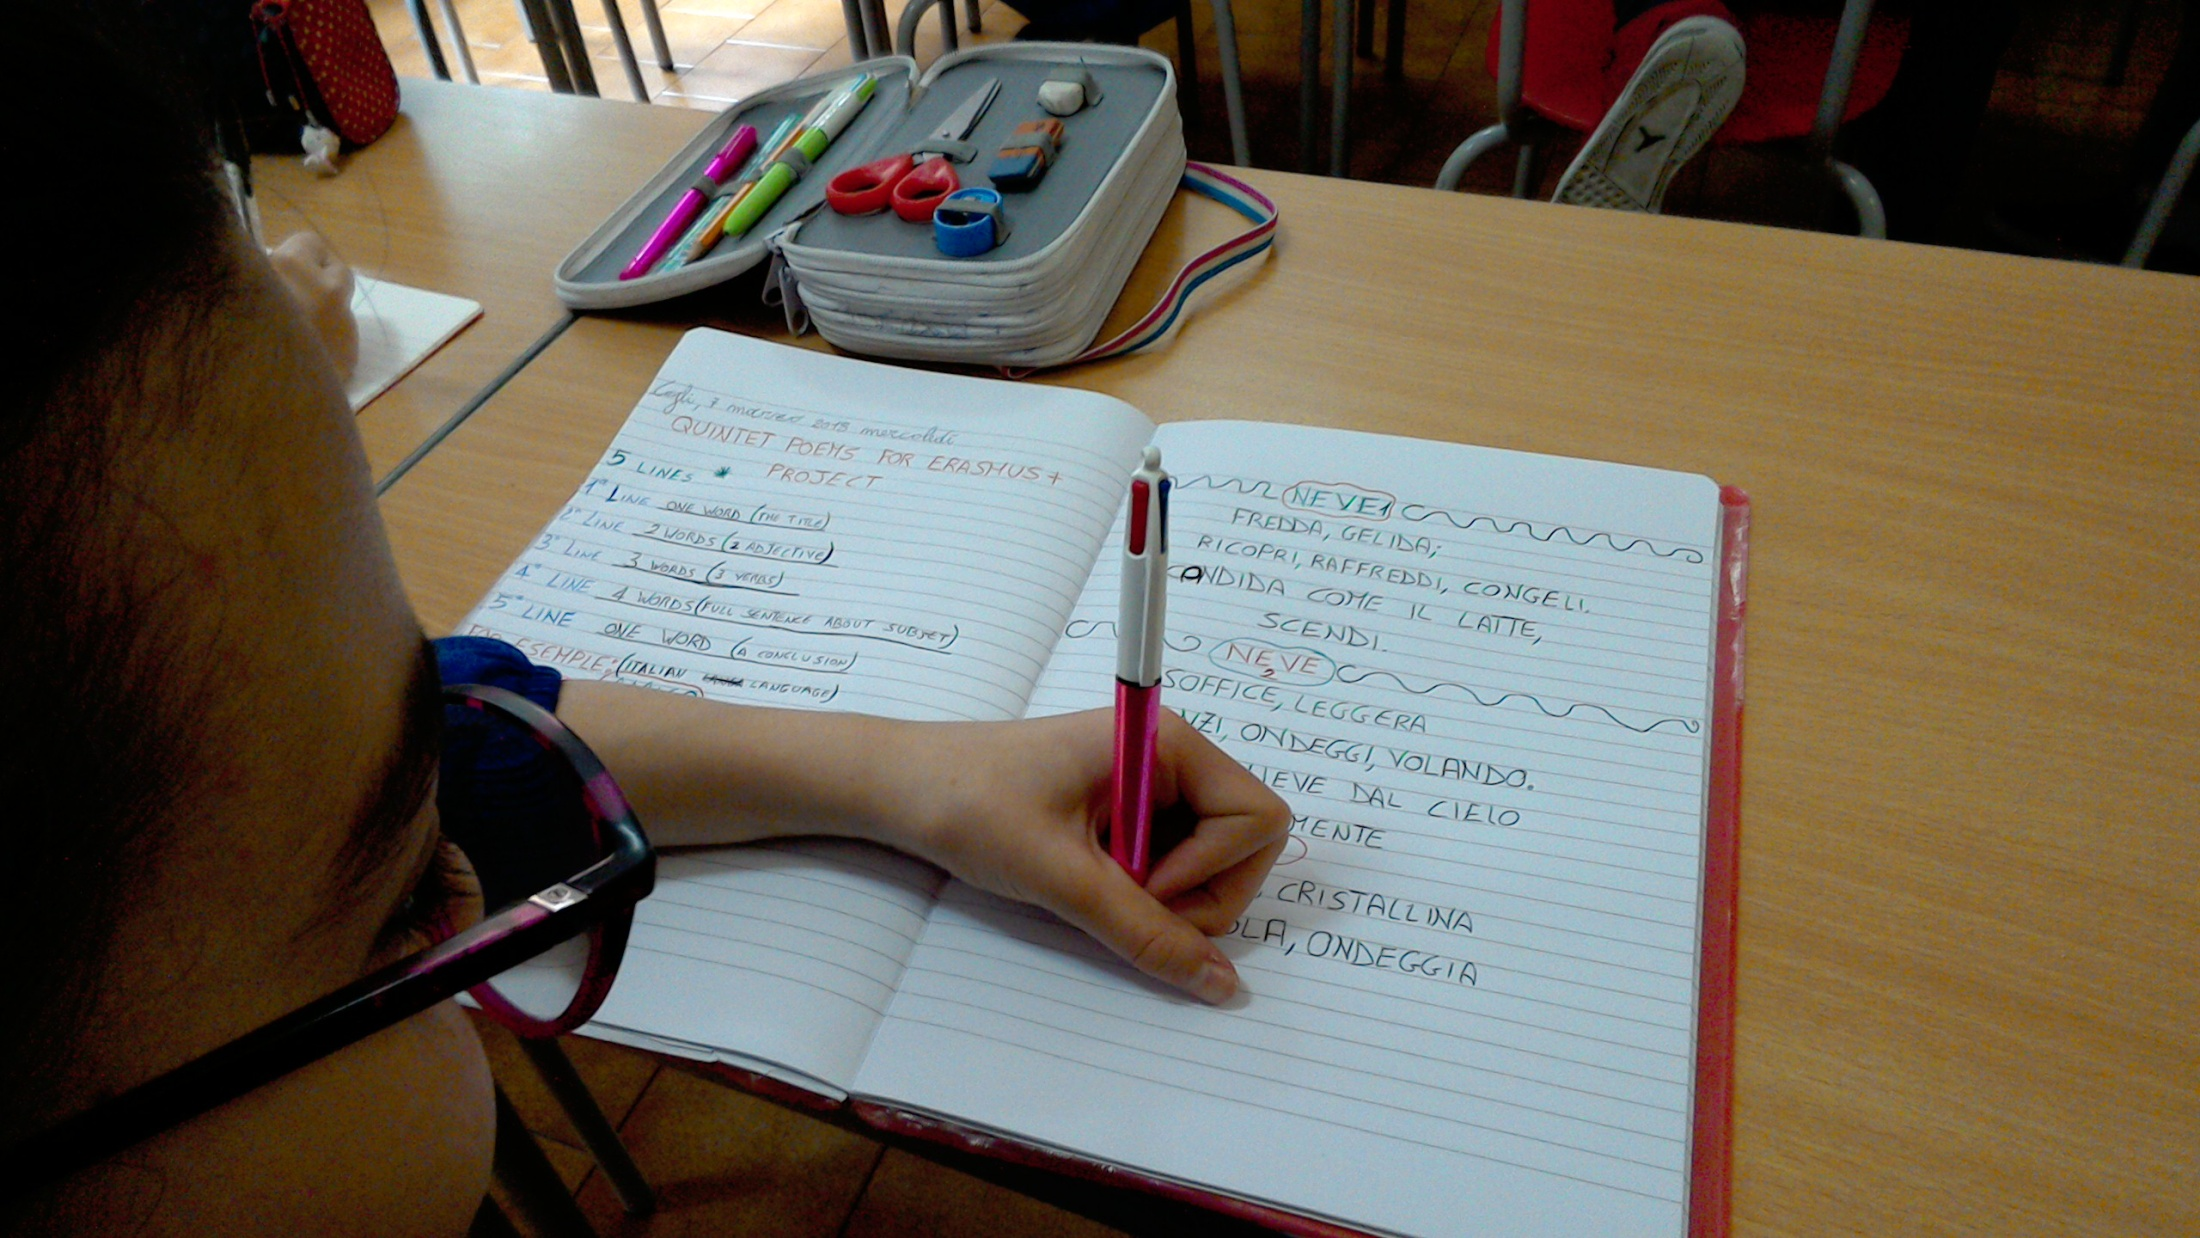 Cagli, 7 marzo 2018 mercoledì
QUINTET POEMS FOR ERASMUS+
PROJECT
5 LINES *
1° LINE ONE WORD (THE TITLE)
2° LINE 2 WORDS (2 ADJECTIVE)
3° LINE 3 WORDS (3 VERBS)
4° LINE 4 WORDS (FULL SENTENCE ABOUT SUBJET)
5° LINE ONE WORD (A CONCLUSION)
FOR ESEMPLE; (ITALIAN LANGUAGE)
NEVE 1
FREDDA, GELIDA;
RICOPRI, RAFFREDDI, CONGELI.
CANDIDA COME IL LATTE,
SCENDI.
NEVE 2
SOFFICE, LEGGERA
ONDEGGI, VOLANDO.
DAL CIELO
CRISTALLINA
ONDEGGIA